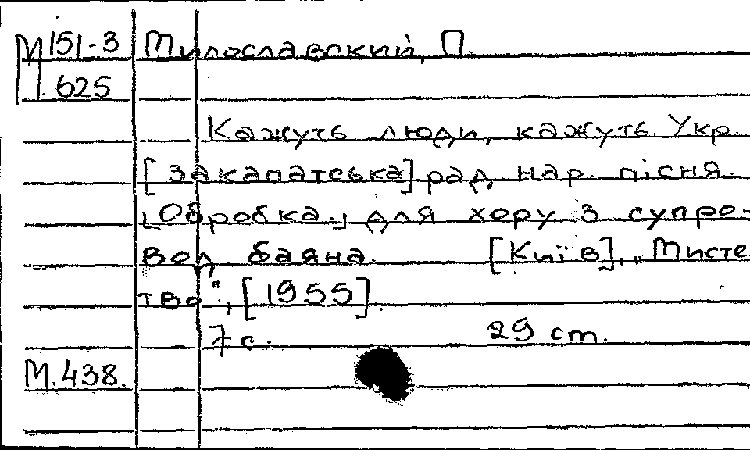 М 151-3 Милославский, П.
625
Кажуть люди, кажуть. Укр.
[закапатська] рад. нар. пісня.
[Обробка] для хору з супро-
вод. баяна. [Київ], „Мисте
тво", [1955].
7 с. 29 cm.
М.438.